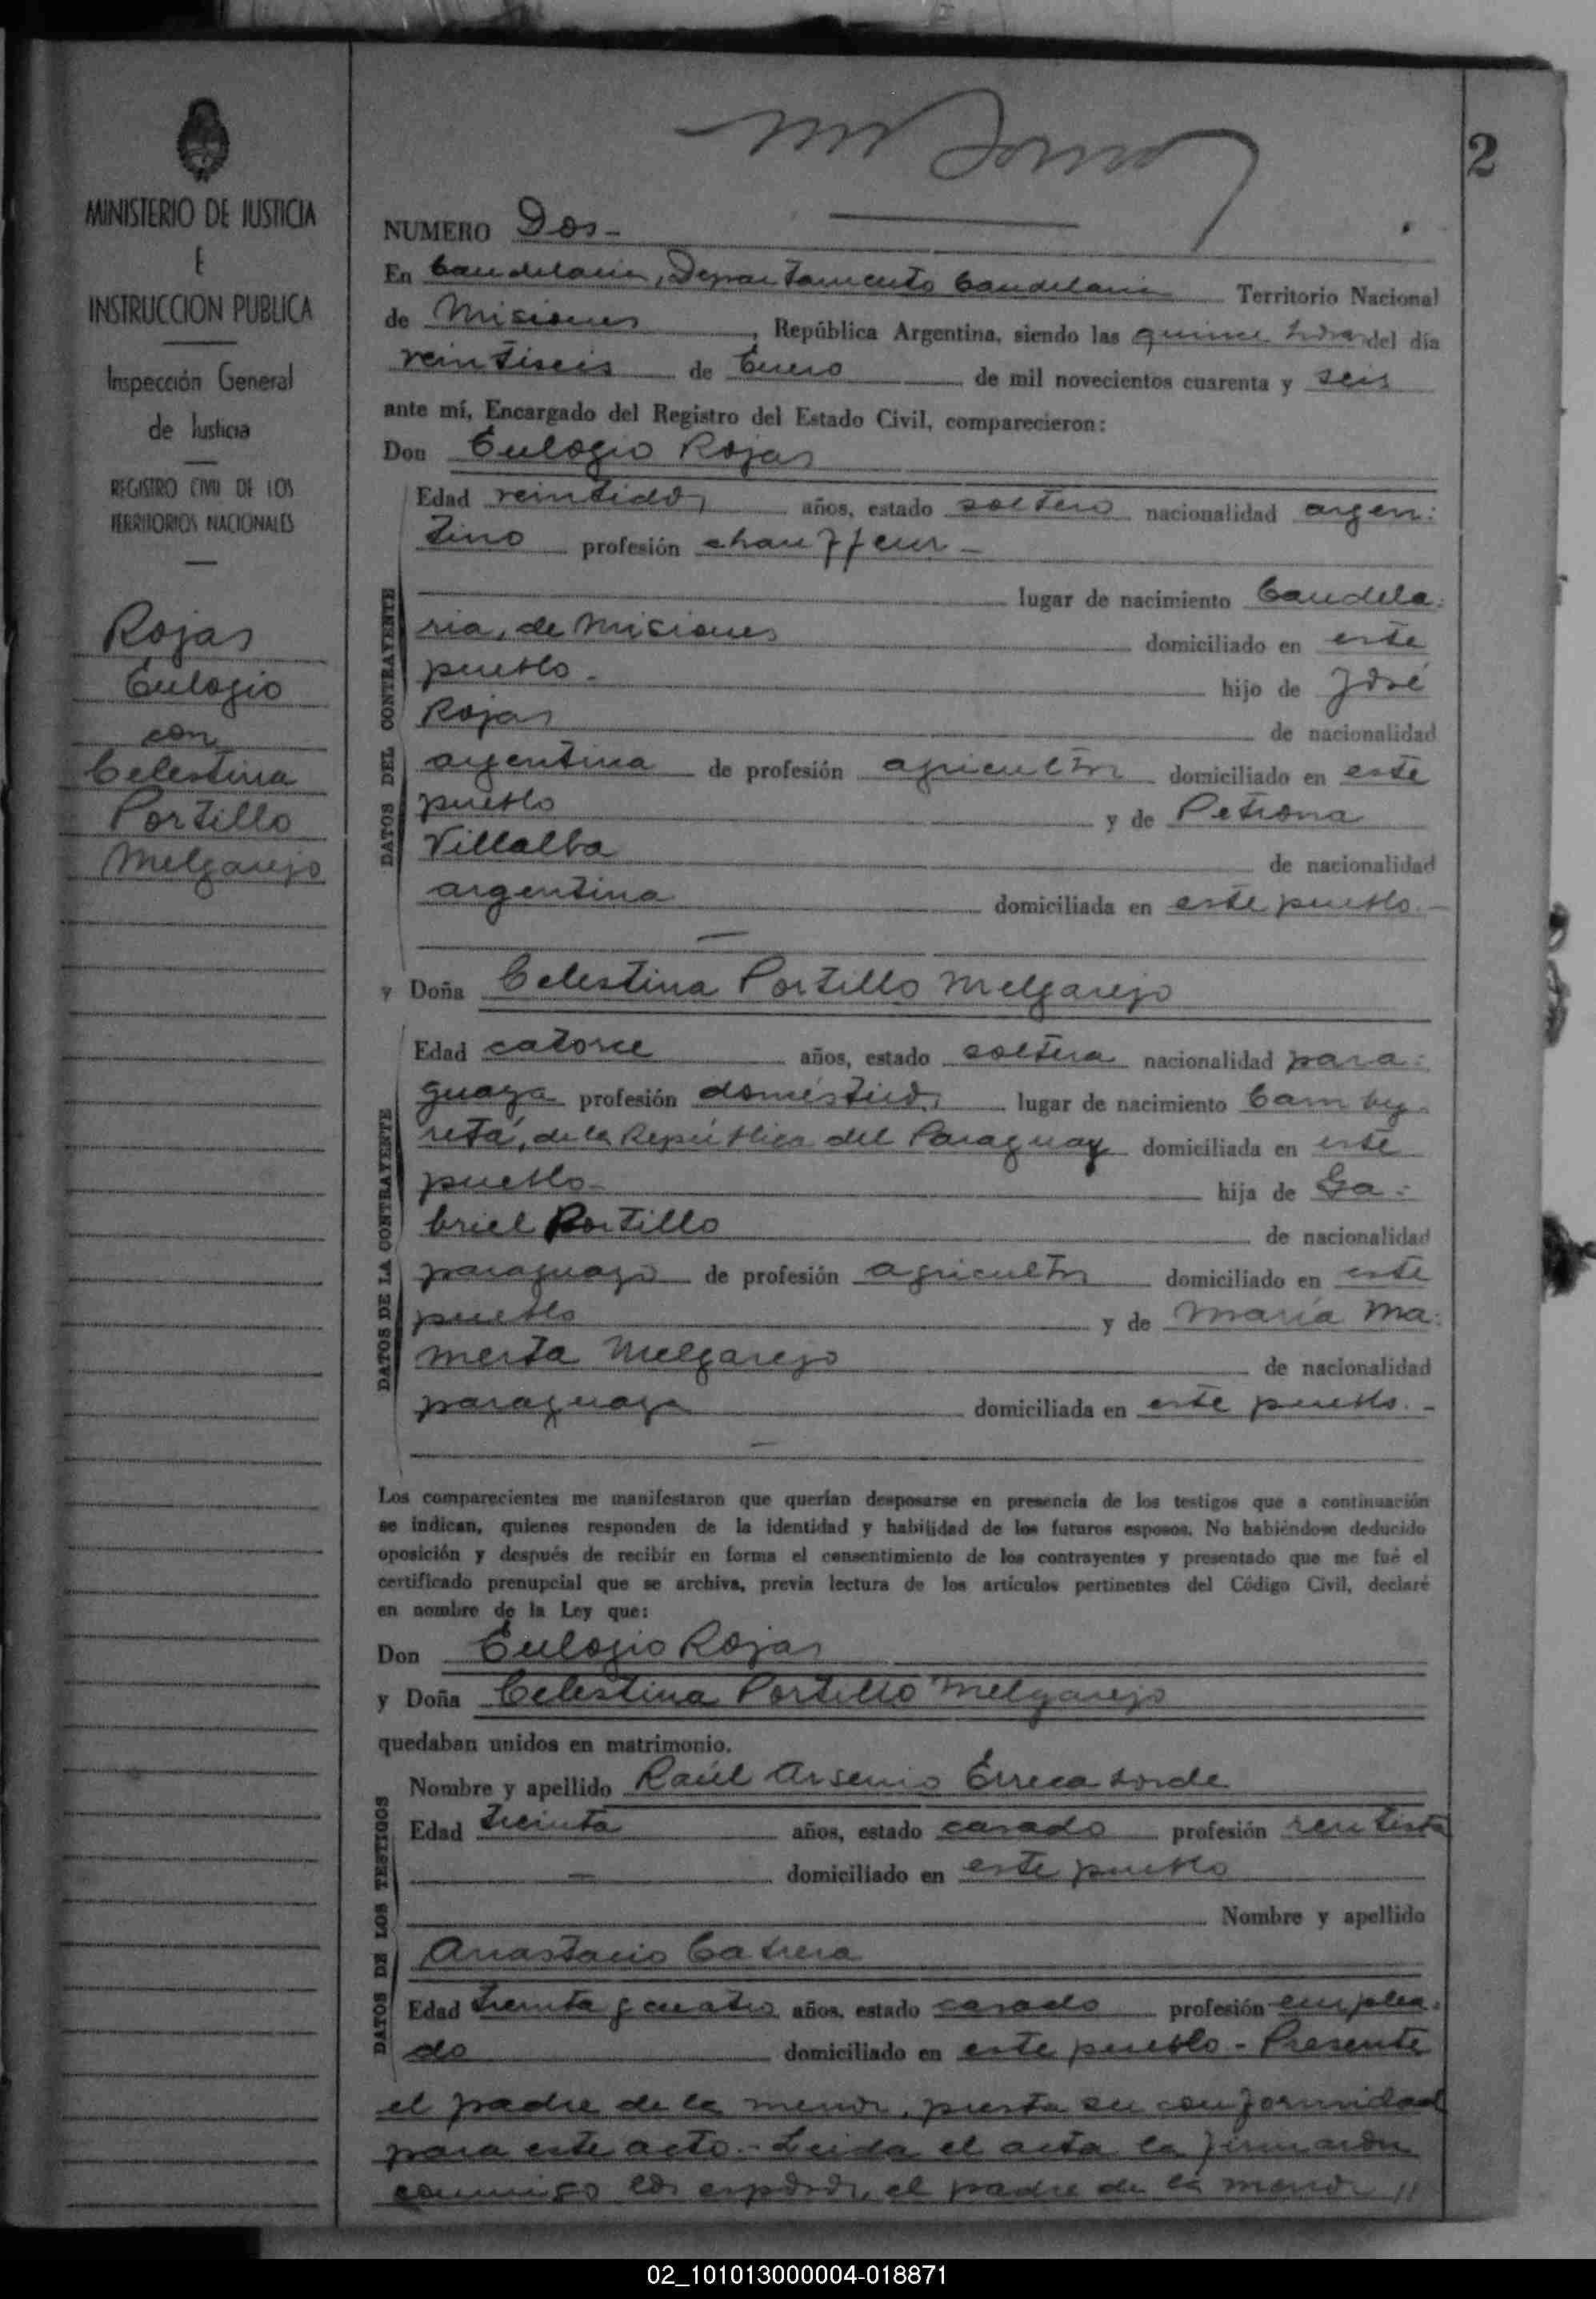 2
MINISTERIO DE JUSTICIA
E
INSTRUCCION PUBLICA
Inspección General
de Justicia
REGISTRO CIVIL DE LOS
TERRITORIOS NACIONALES
Rojas
Eulogio
con
Celestina
Portillo
Melgarejo
NUMERO Dos-
En Candelaria, Departamento Candelaria Territorio Nacional
de Misiones, República Argentina, siendo las quince horas del día
veintiseis de Enero de mil novecientos cuarenta y seis
ante mí, Encargado del Registro del Estado Civil, comparecieron:
Don Eulogio Rojas
DATOS DEL CONTRAYENTE
Edad veintidos, años, estado soltero nacionalidad argen:
tino profesión chauffeur -
lugar de nacimiento Candela:
ria, de Misiones domiciliado en este
pueblo- hijo de José
Rojas de nacionalidad
argentina de profesión agricultor domiciliado en este
pueblo y de Petrona
Villalba de nacionalidad
argentina domiciliada en este pueblo.-
y Doña Celestina Portillo Melgarejo
DATOS DE LA CONTRAYENTE
Edad catorce años, estado soltera nacionalidad para:
guaya profesión domésticos, lugar de nacimiento Camby-
retá, de la República del Paraguay domiciliada en este
pueblo- hija de Ga:
briel Portillo de nacionalidad
paraguayo de profesión agricultor domiciliado en este
pueblo y de María Ma:
merta Melgarejo de nacionalidad
paraguaya domiciliada en este pueblo.-
Los comparecientes me manifestaron que querían desposarse en presencia de los testigos que a continuación
se indican, quienes responden de la identidad y habilidad de los futuros esposos. No habiéndose deducido
oposición y después de recibir en forma el consentimiento de los contrayentes y presentado que me fué el
certificado prenupcial que se archiva, previa lectura de los artículos pertinentes del Código Civil, declaré
en nombre de la Ley que:
Don Eulogio Rojas
y Doña Celestina Portillo Melgarejo
quedaban unidos en matrimonio.
DATOS DE LOS TESTIGOS
Nombre y apellido Raúl Arsenio Errecaborde
Edad treinta años, estado casado profesión rentista
- domiciliado en este pueblo
Nombre y apellido
Anastacio Cabrera
Edad treinta y cuatro años, estado casado profesión emplea:
do domiciliado en este pueblo - Presente
el padre de la menor, presta su conformidad
para este acto.- Leida el acta la firmaron
conmigo los esposos, el padre de la menor //
02_101013000004-018871